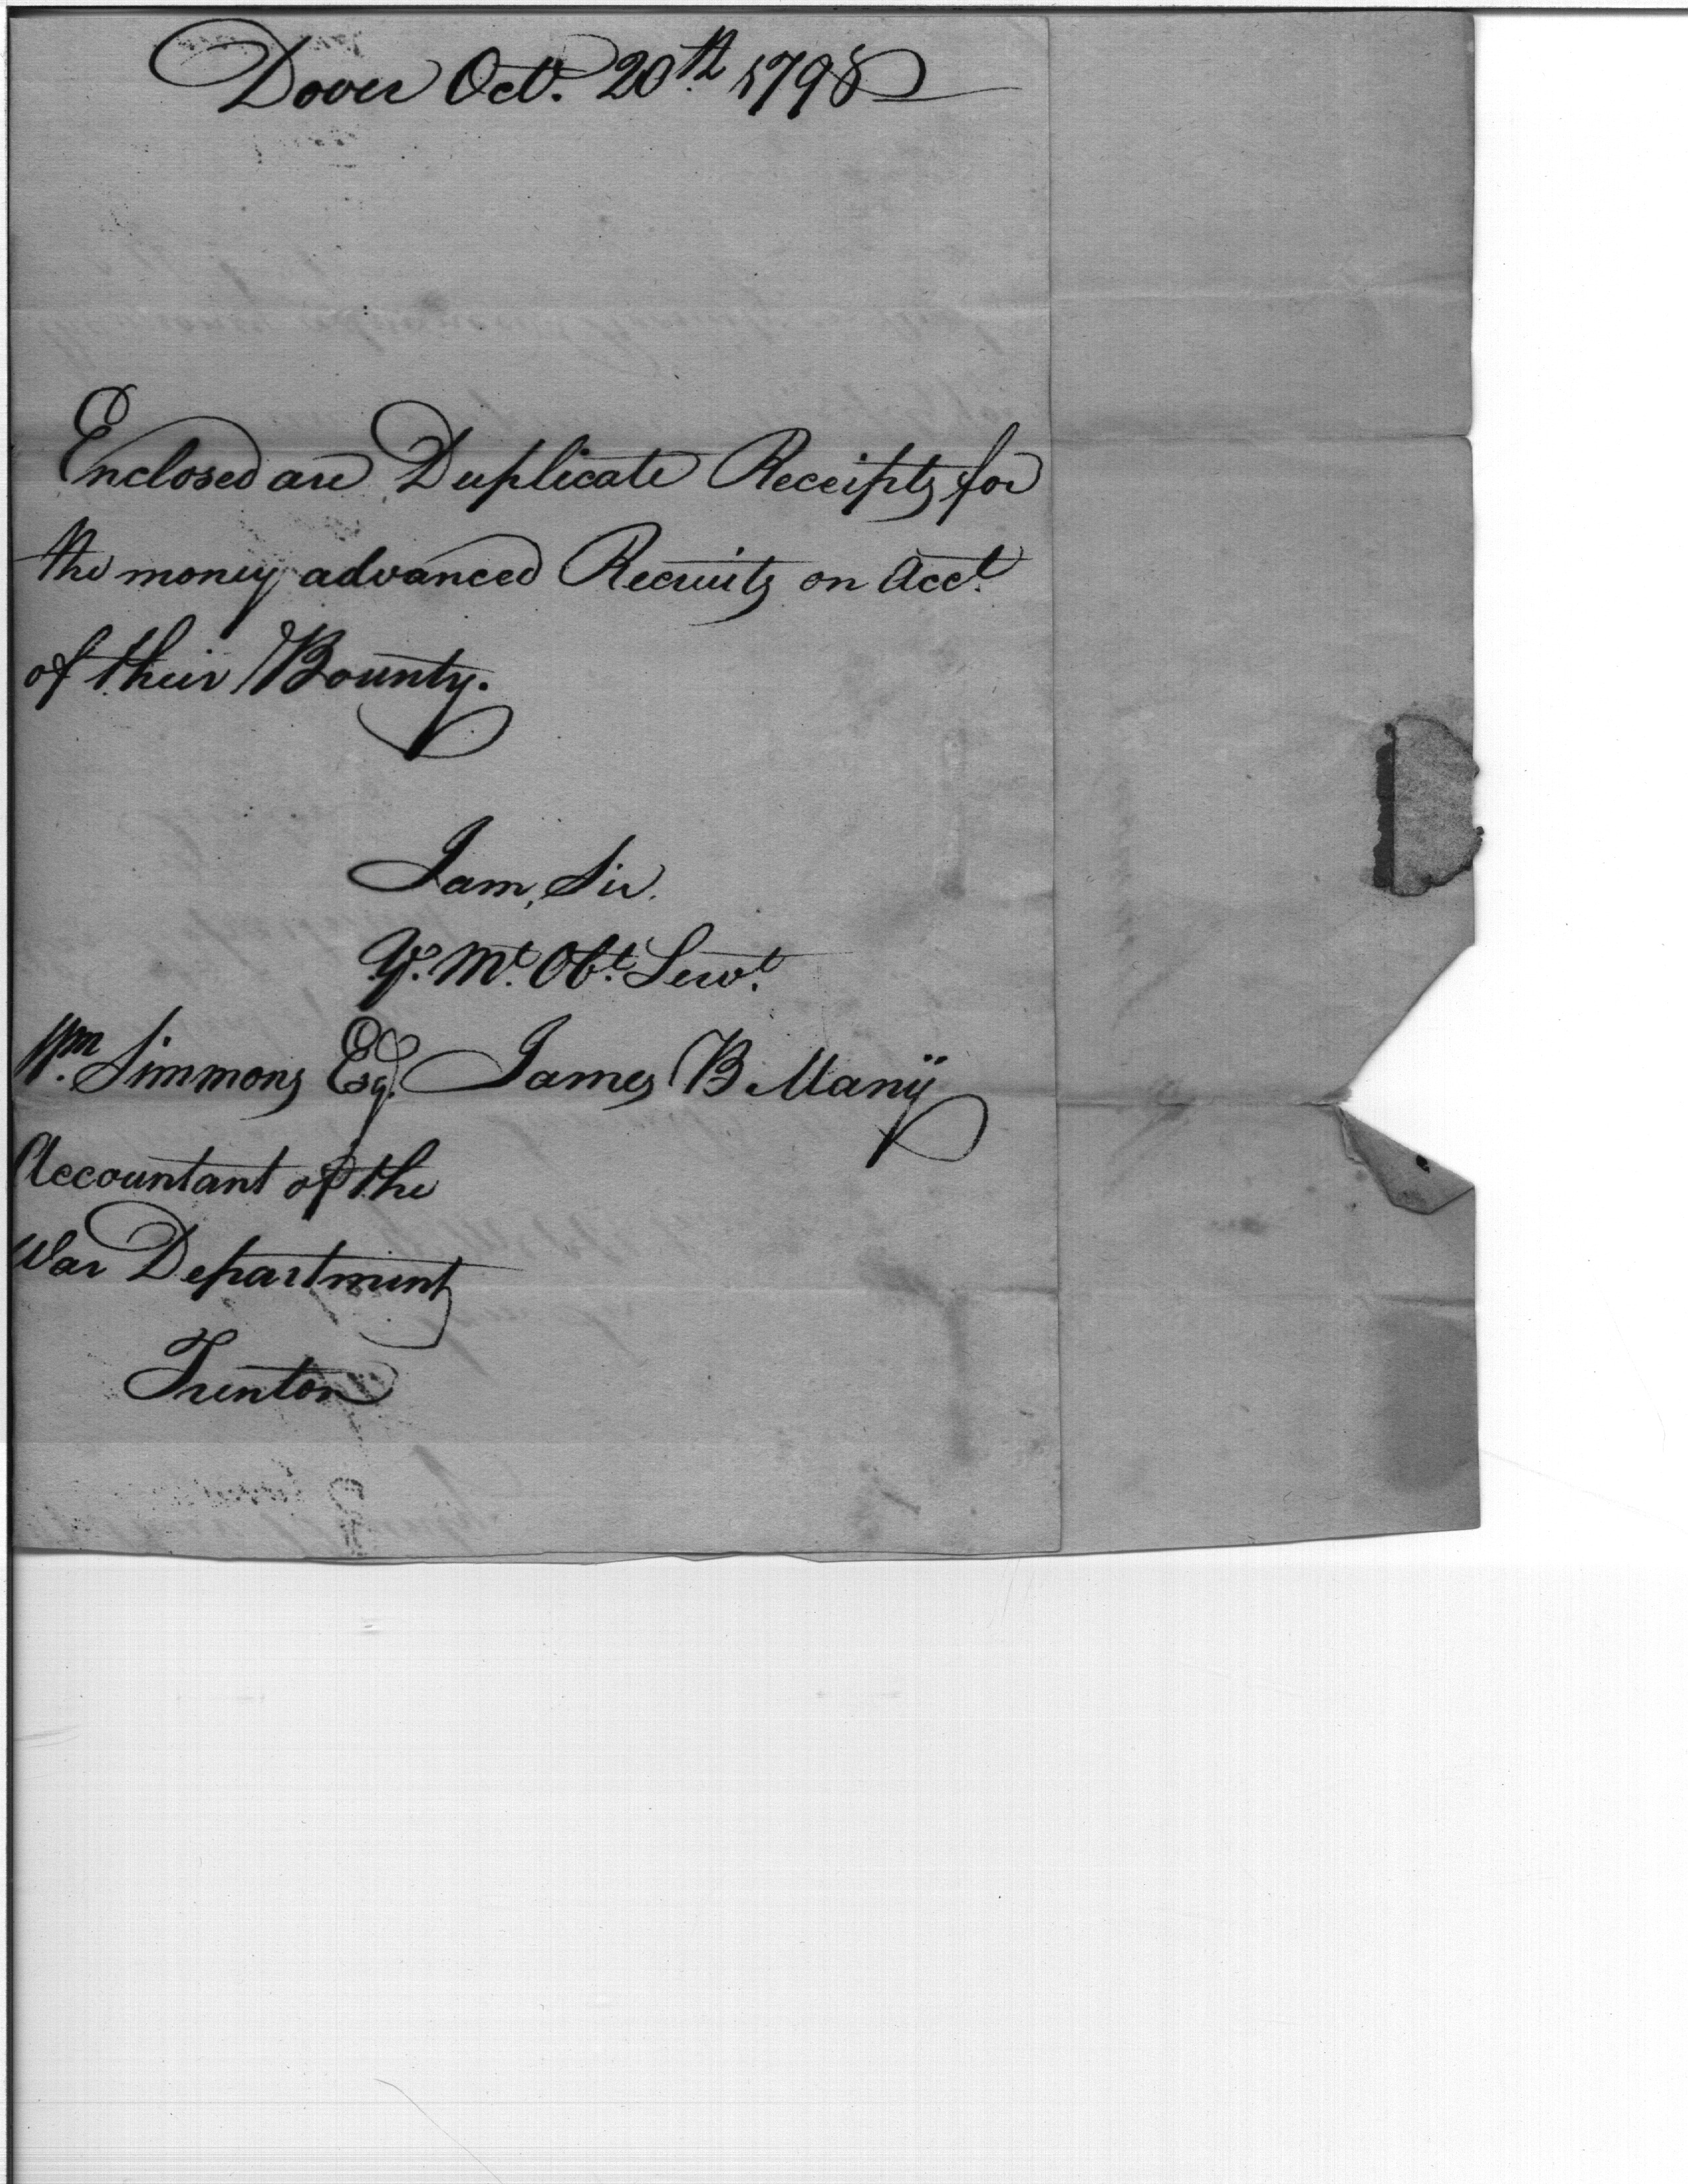 Dover Oct. 20th 1798
Enclosed are Duplicate Receipts for
the money advanced Recruits on Acct.
of their Bounty.
I am, Sir.
Yr. Mt. Obt. Servt.
Wm. Simmons Esq. James B Manÿ
Accountant of the
War Department
Trenton